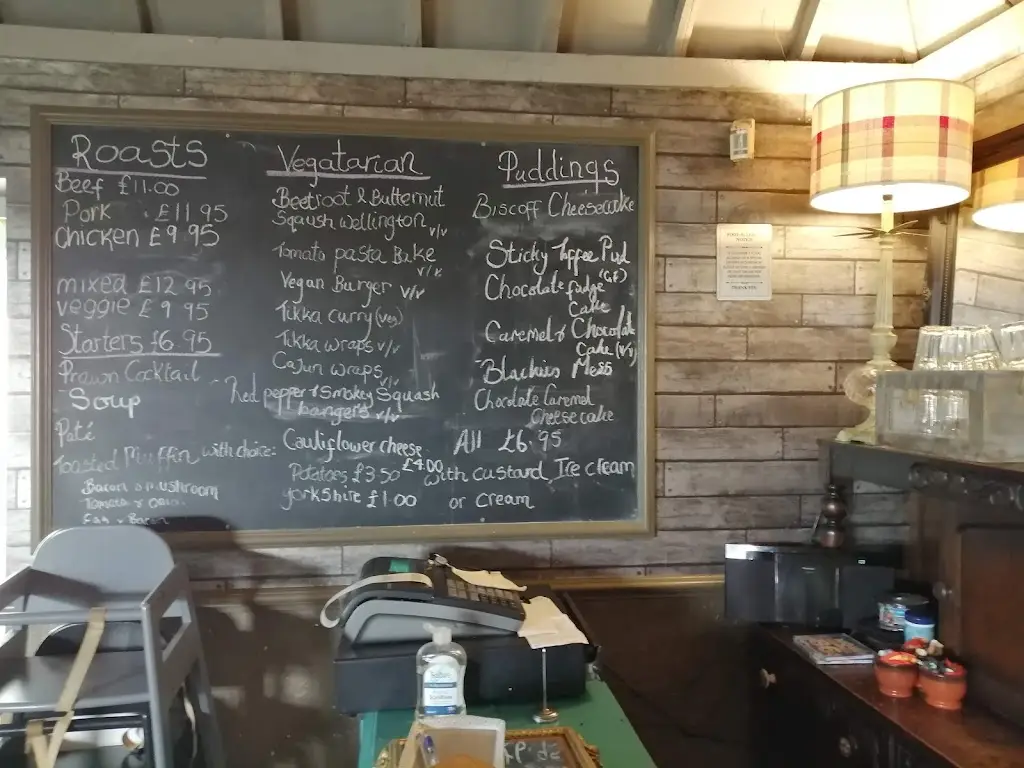 Roasts
Beef £11.00
Pork £11.95
Chicken £9.95
mixed £12.95
veggie £9.95
Starters £6.95
Prawn Cocktail
Soup
Paté
Toasted Muffin with choice:
Bacon & mushroom
Tomato & Onion
Egg & Bacon
Vegatarian
Beetroot & Butternut
Sqaush wellington v/v
Tomato pasta Bake
v/v
Vegan Burger v/v
Tikka curry (veg)
Tikka wraps v/v
Cajun wraps v/v
Red pepper & Smokey Squash
bangers v/v
Cauliflower cheese
£4.00
Potatoes £3.50
Yorkshire £1.00
Puddings
Biscoff Cheesecake
Sticky Toffee Pud
Chocolate fudge (G.F)
Cake
Caramel & Chocolate
Cake (v/v)
Blackies Mess
Chocolate Caramel
Cheesecake
All £6.95
with custard, Ice cream
or cream